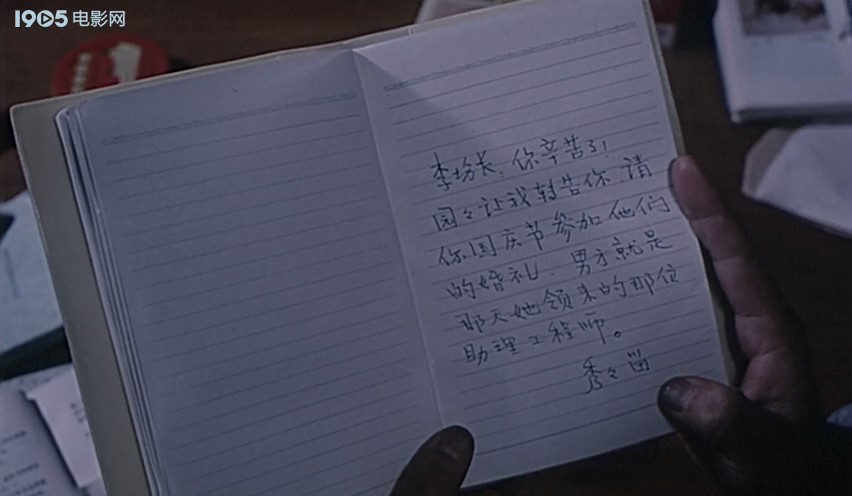 1905电影网
李场长：你辛苦了！
园々让我转告你，请
你国庆节参加他们
的婚礼．男方就是
那天她领来的那位
助理工程师。
秀々留